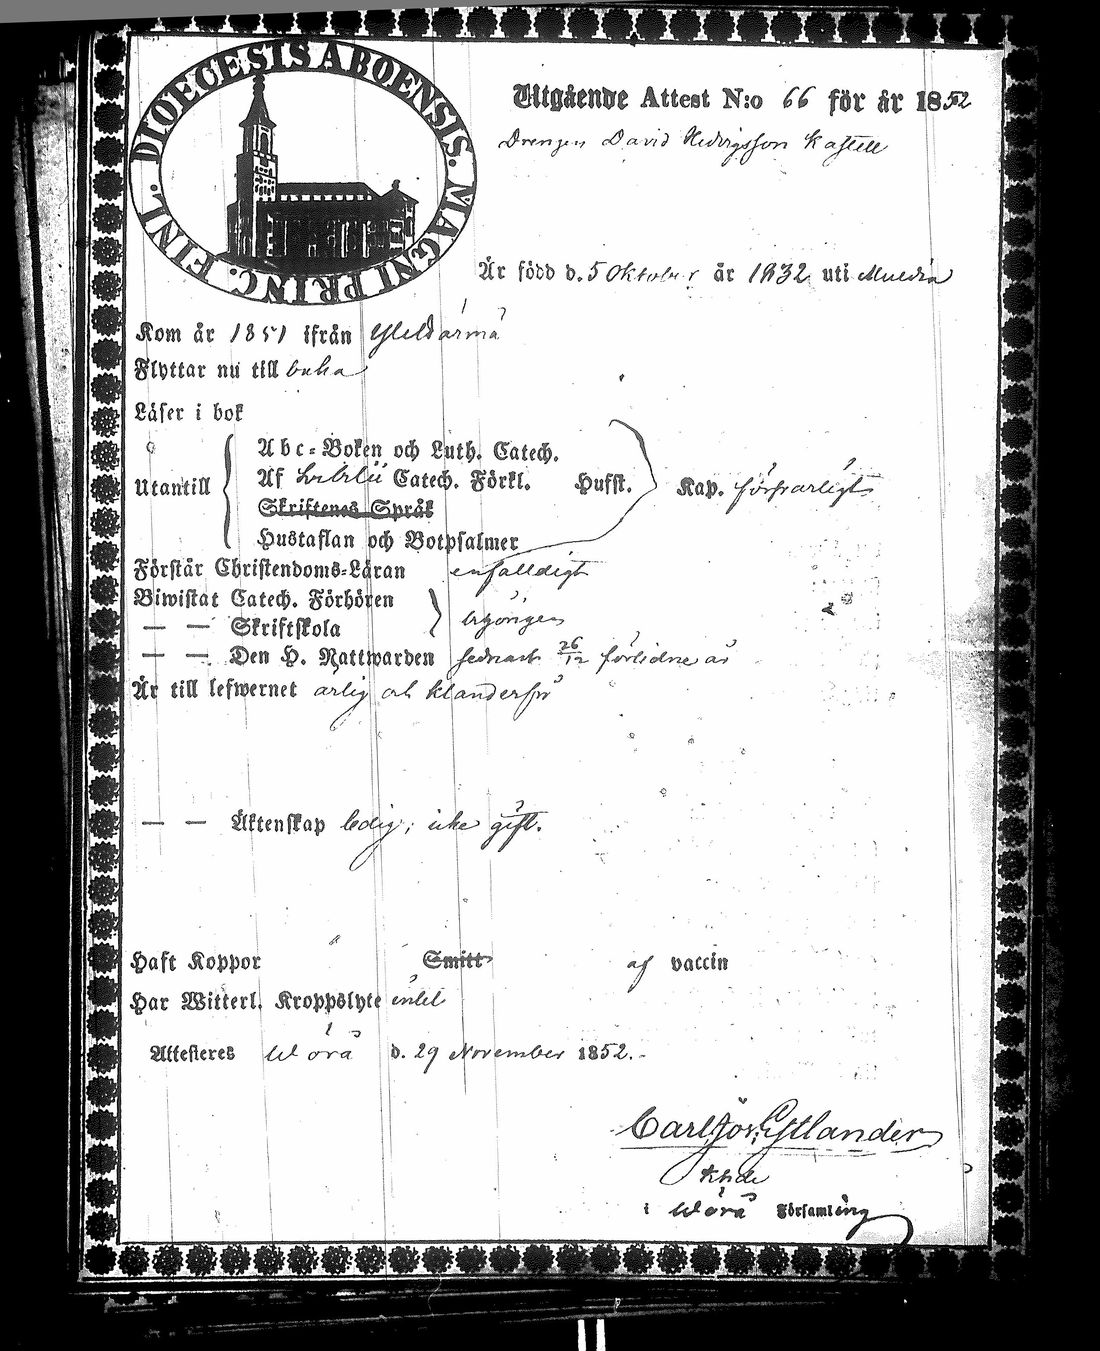 DIOECESIS ABOENSIS. MAGNI PRINC. FINL.
Utgående Attest N:o 66 för år 1852
Drengen David Hedvigsson Kastell
Är född d. 5 Oktober år 1832 uti
Kom år 1851 ifrån Ylihärmä
Flyttar nu till
Läser i bok
Abc-Boken och Luth. Catech.
Utantill Af Catech. Förkl. Husst. Kap. försvarligt
Skriftenes Språk
Hustaflan och Botpsalmer
Förstår Christendoms-Läran enfaldigt
Biwistat Catech. Förhören
— — Skriftskola
— — Den H. Nattwarden sednast 26/12 förlidne år
Är till lefwernet ärlig och klanderfri
— — Äktenskap ledig, icke gift.
Haft Koppor Smitt af vaccin
Har Witterl. Kroppslyte intet
Attesteres Wörå d. 29 November 1852.
Carl Gylander
i Wörå Församling